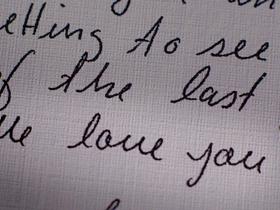 etting to see
of the last
we love you